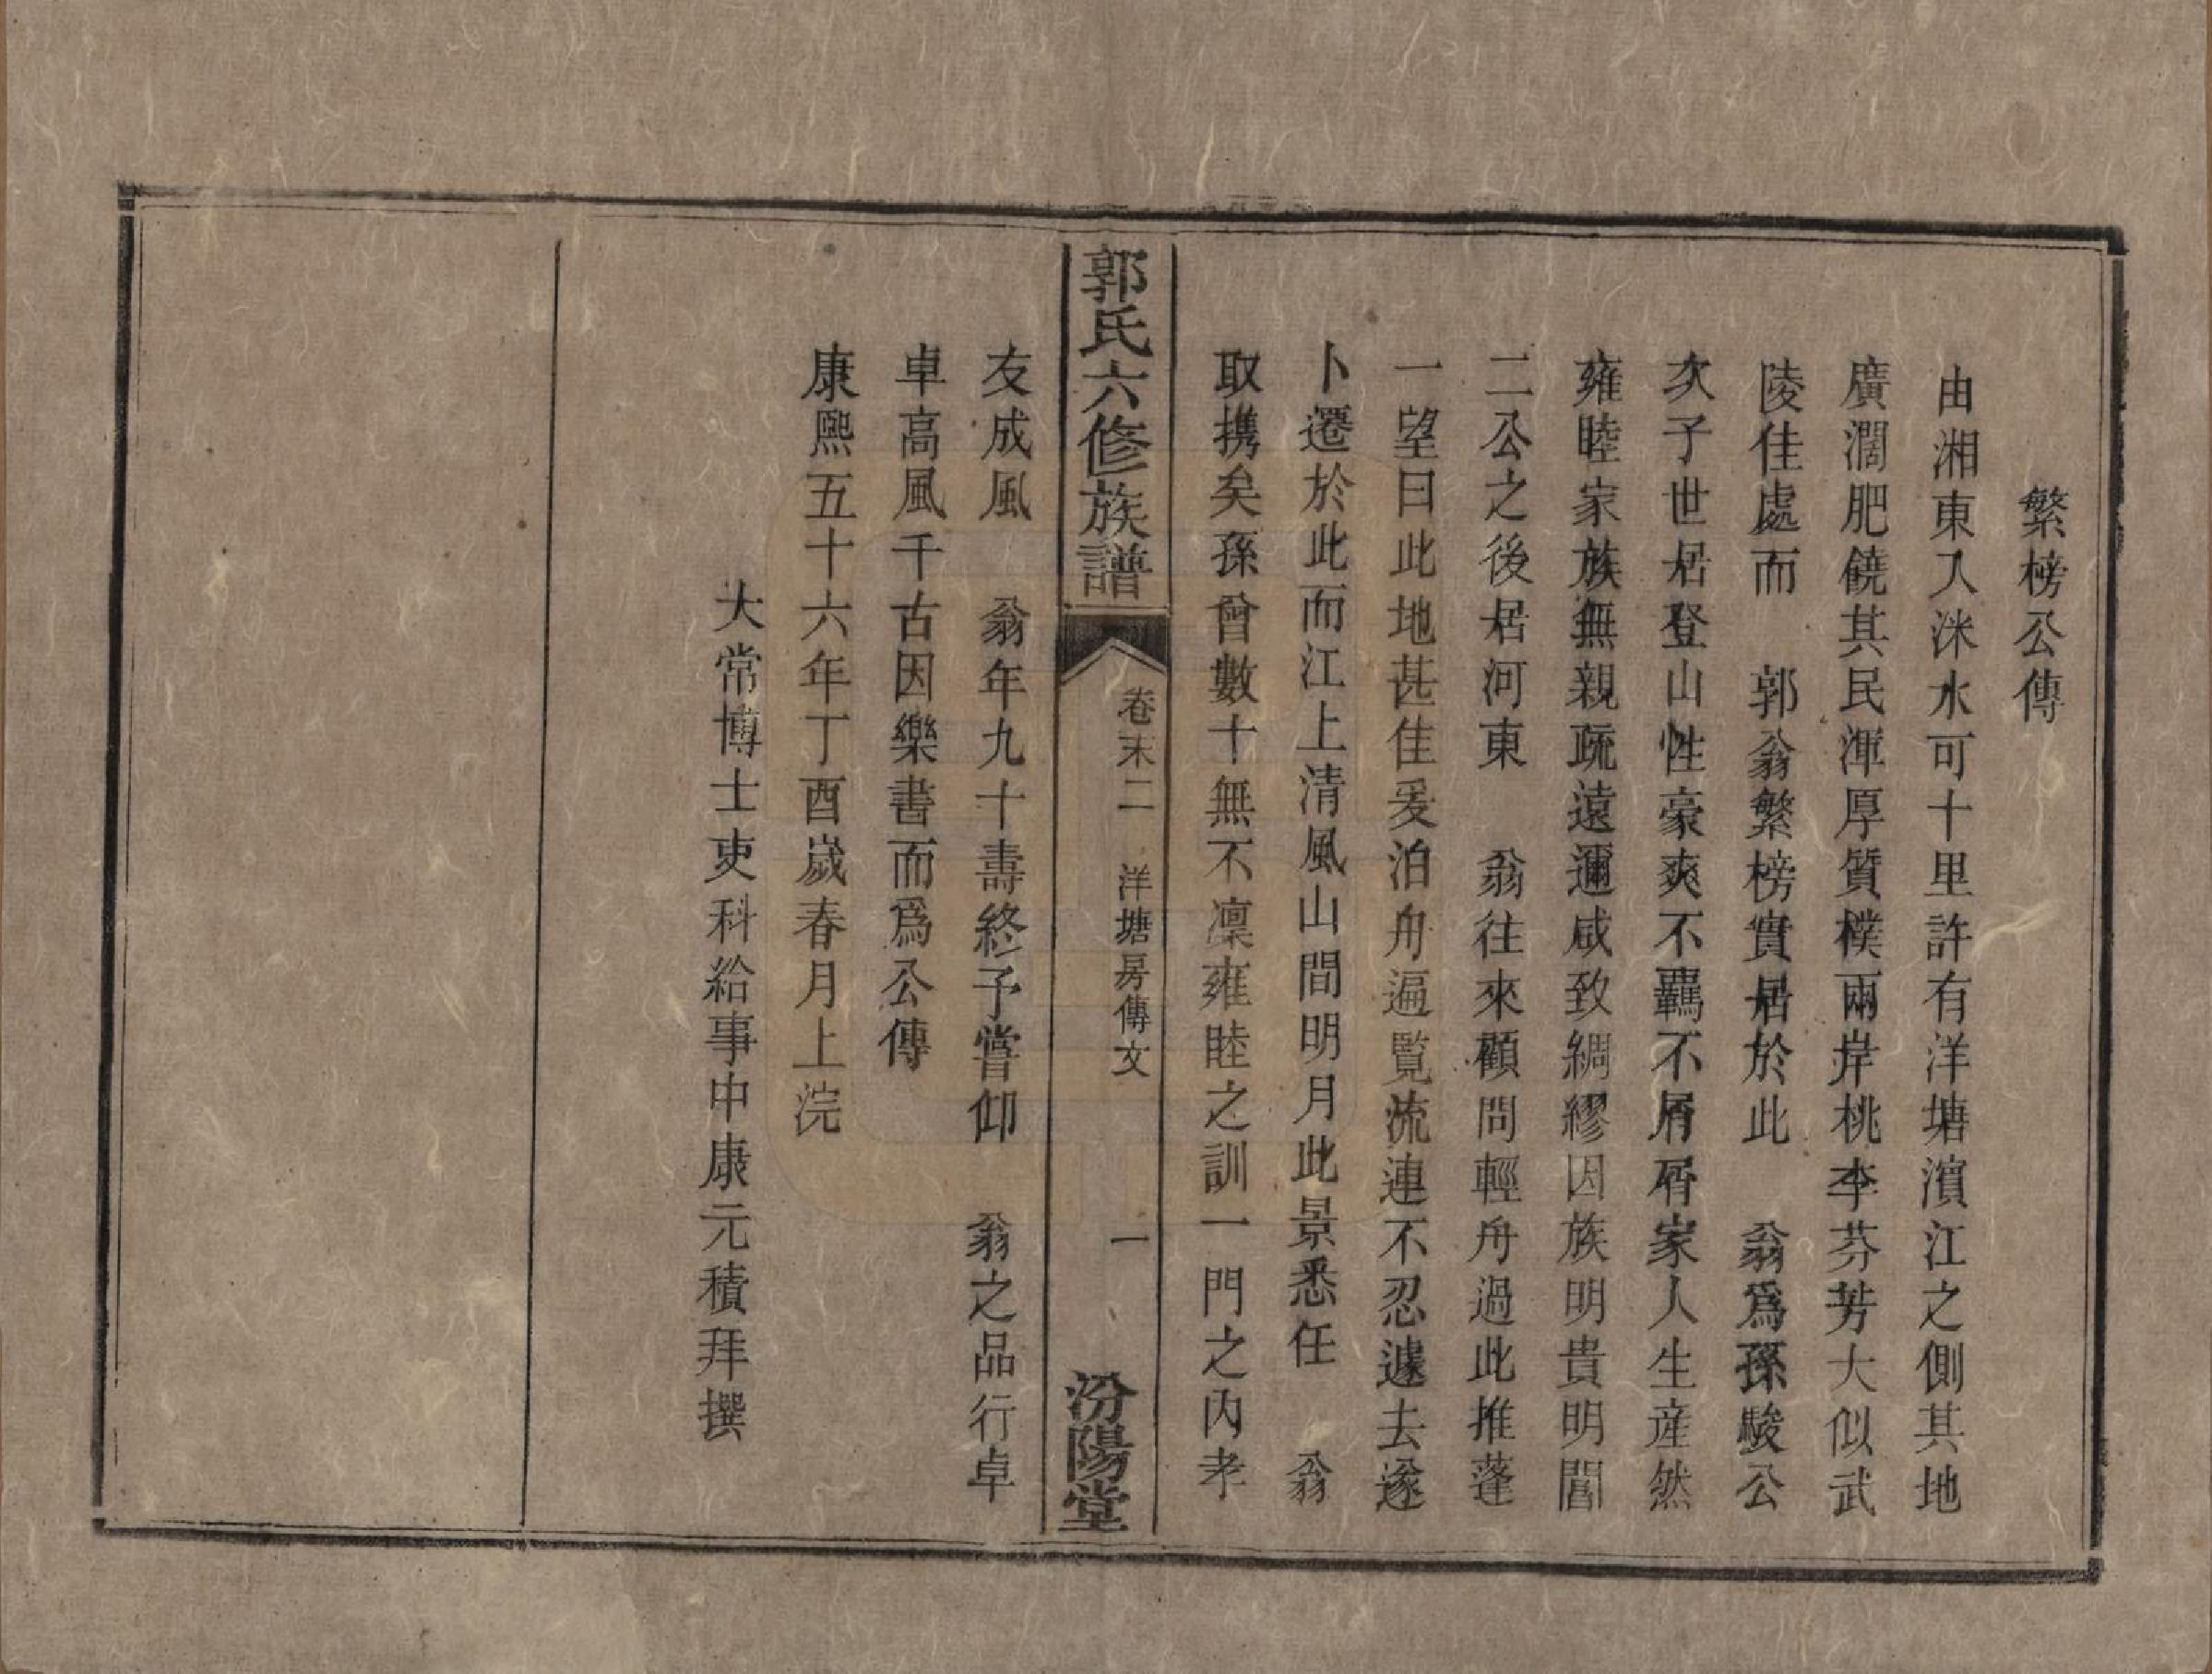 繁榜公傳
由湘東入洣水可十里許有洋塘濱江之側其地
廣濶肥饒其民渾厚質樸兩岸桃李芬芳大似武
陵佳處而　郭翁繁榜實居於此　翁爲孫駿公
次子世居登山性豪爽不羈不屑屑家人生産然
雍睦家族無親疏遠邇咸致綢繆因族明貴明閶
二公之後居河東　翁往來顧問輕舟過此推蓬
一望曰此地甚佳爰泊舟遍覧流連不忍遽去遂
卜遷於此而江上清風山間明月此景悉任　翁
取携矣孫曾數十無不凜雍睦之訓一門之內孝
郭氏六修族譜
卷末二　洋塘房傳文
一
汾陽堂
友成風　翁年九十壽終予嘗仰　翁之品行卓
卓高風千古因樂書而爲公傳
康熙五十六年丁酉嵗春月上浣
大常博士吏科給事中康元積拜撰